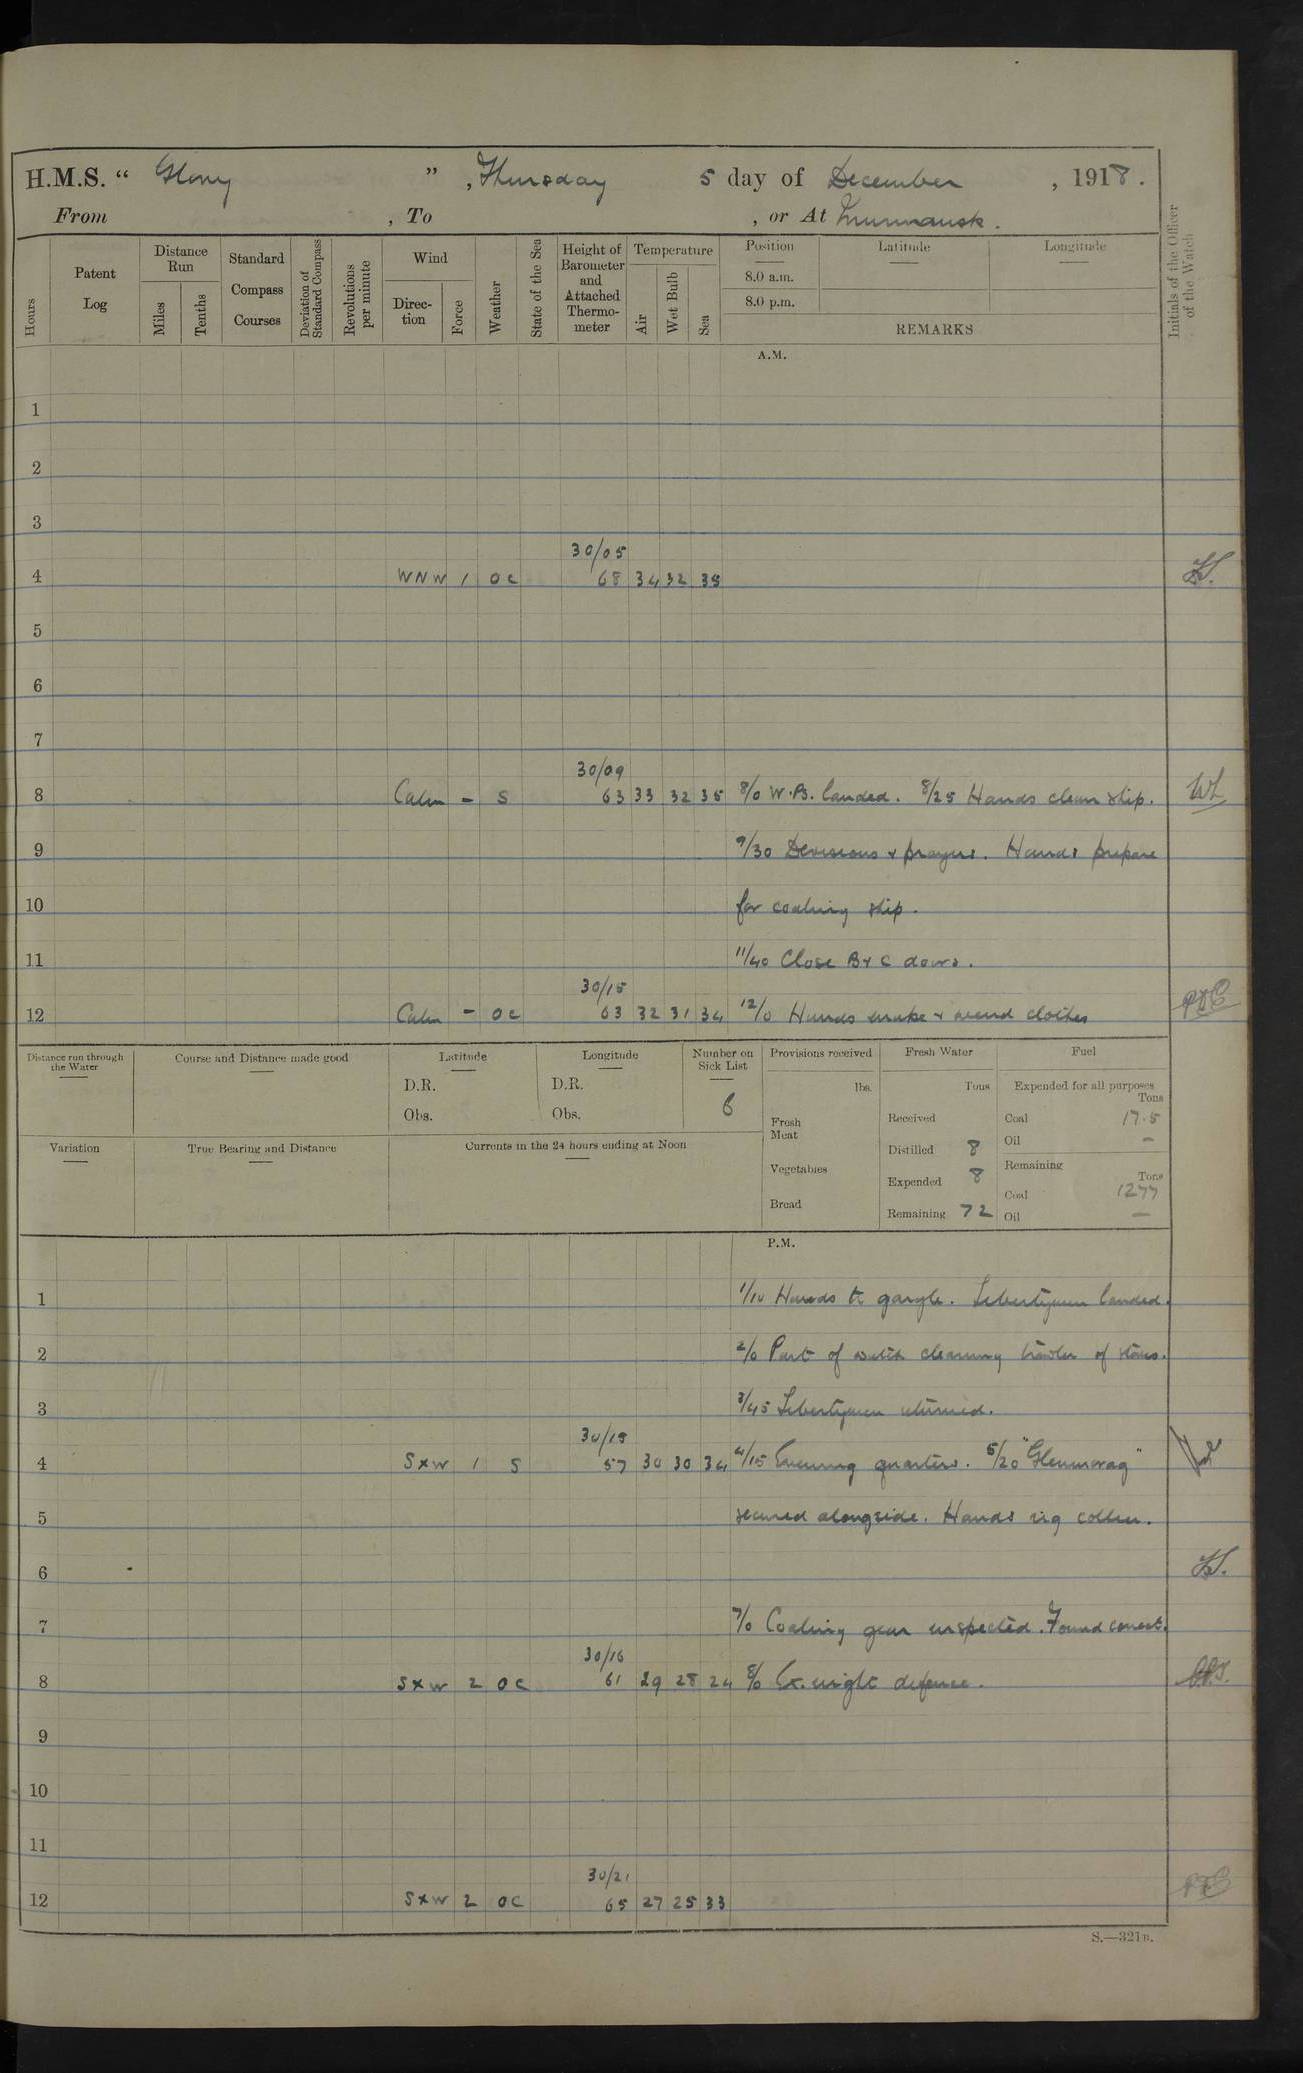 H.M.S. “ Glory ” , Thursday 5 day of December , 1918.
From , To , or At Murmansk.
Hours
Patent Log
Distance Run
Miles
Tenths
Standard Compass Courses
Deviation of Standard Compass
Revolutions per minute
Wind
Direc-tion
Force
Weather
State of the Sea
Height of Barometer and Attached Thermo-meter
Temperature
Air
Wet Bulb
Sea
Position Latitude Longitude
8.0 a.m.
8.0 p.m.
REMARKS
Initials of the Officer of the Watch
A.M.
1
2
3
30/05
4 WNW 1 OC 68 34 32 35
5
6
7
30/09
8 Calm - S 63 33 32 35 8/0 W.P. landed. 8/25 Hands clean ship.
9 9/30 Divisions & prayers. Hands prepare
10 for coaling ship.
11 11/40 Close B & C doors.
30/15
12 Calm - OC 63 32 31 34 12/0 Hands make & mend clothes
Distance run through the Water
Course and Distance made good
Latitude
D.R.
Obs.
Longitude
D.R.
Obs.
Number on Sick List
6
Variation
True Bearing and Distance
Currents in the 24 hours ending at Noon
Provisions received
lbs.
Fresh Meat
Vegetables
Bread
Fresh Water
Tons
Received
Distilled 8
Expended 8
Remaining 72
Fuel
Expended for all purposes
Tons
Coal 17.5
Oil -
Remaining
Tons
Coal 1277
Oil -
P.M.
1 1/10 Hands to gargle. Libertymen landed.
2 2/0 Part of watch clearing trawler of stores.
3 3/45 Libertymen returned.
30/15
4 SxW 1 S 57 30 30 34 4/15 Evening quarters. 5/20 "Glenmorag"
5 secured alongside. Hands rig collier.
6
7 7/0 Coaling gear inspected. Found correct.
30/16
8 SxW 2 OC 61 29 28 24 8/0 Ex. night defence.
9
10
11
30/21
12 SxW 2 OC 65 27 25 33
S.—321B.